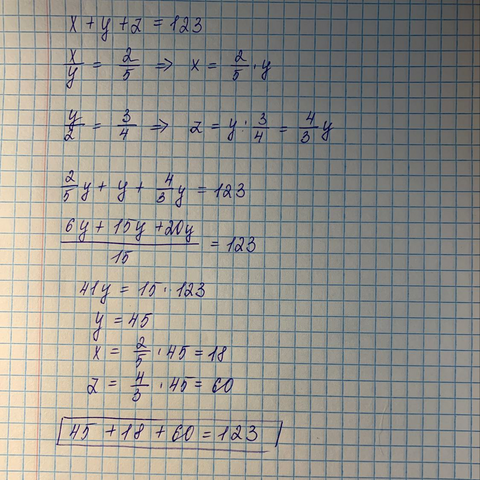 x + y + z = 123
x/y = 2/5 ⇒ x = 2/5 · y
y/z = 3/4 ⇒ z = y : 3/4 = 4/3 y
2/5 y + y + 4/3 y = 123
(6y + 15y + 20y)/15 = 123
41y = 15 · 123
y = 45
x = 2/5 · 45 = 18
z = 4/3 · 45 = 60
45 + 18 + 60 = 123